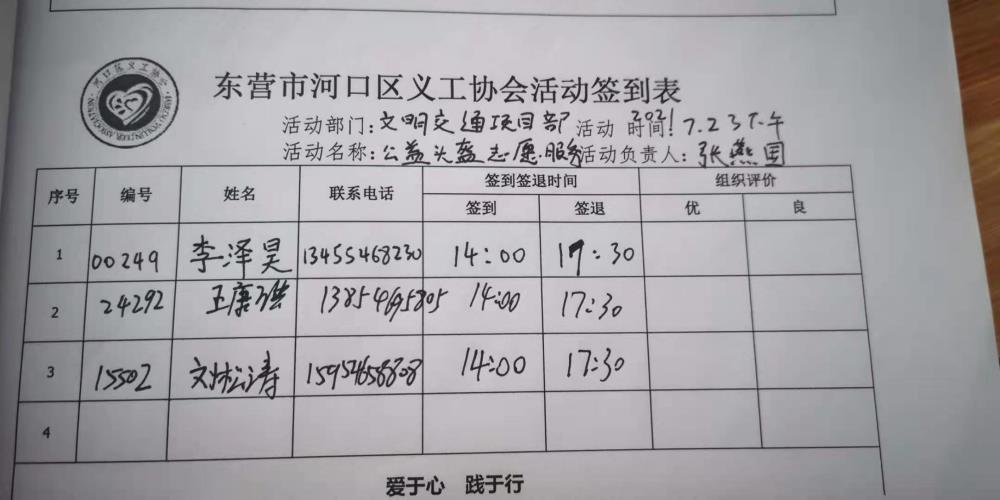 东营市河口区义工协会活动签到表
活动部门:文明交通项目部 活动时间:2021 7.23下午
活动名称:公益头盔志愿服务 活动负责人:张燕国
序号 编号 姓名 联系电话 签到签退时间 组织评价
签到 签退 优 良
1 00249 李泽昊 13455468230 14:00 17:30
2 24292 14:00 17:30
3 15502 15954658808 14:00 17:30
4
爱于心 践于行